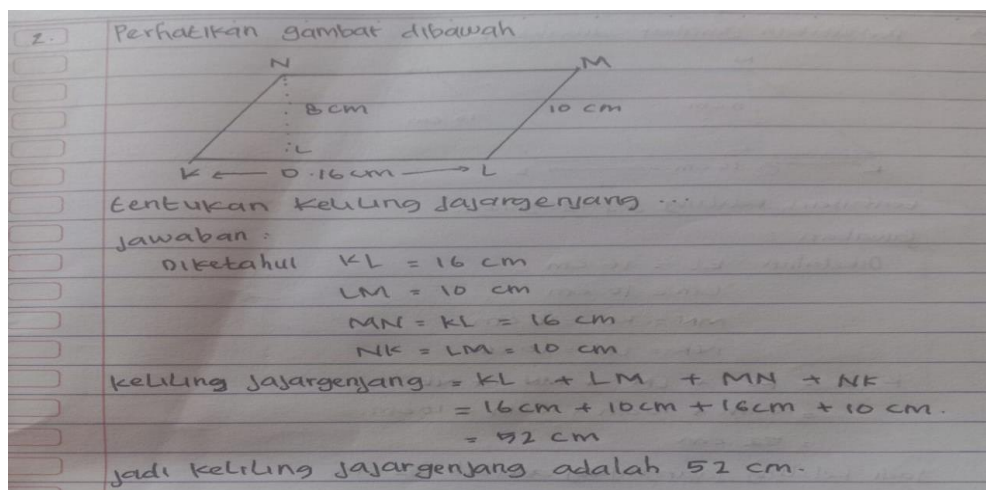 2. Perhatikan gambar dibawah
N M
8 cm 10 cm
L
K ← O .16 cm → L
tentukan keliling Jajargenjang ...
Jawaban :
Diketahui KL = 16 cm
LM = 10 cm
MN = KL = 16 cm
NK = LM = 10 cm
Keliling Jajargenjang = KL + LM + MN + NK
= 16cm + 10cm + 16cm + 10 cm.
= 52 cm
Jadi keliling Jajargenjang adalah 52 cm.